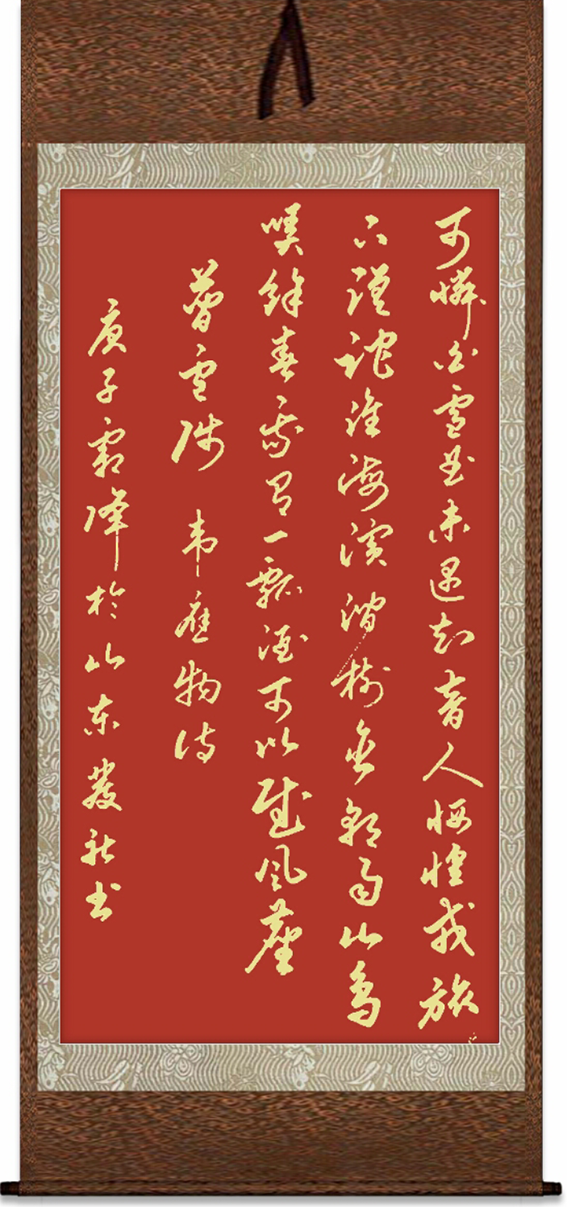 可憐白雪曲未遇知音人恓惶戎旅
下蹉跎淮海濱澗樹含朝雨山鳥
哢餘春我有一瓢酒可以慰風塵
簡盧陟 韦應物诗
庚子霜降於山东书